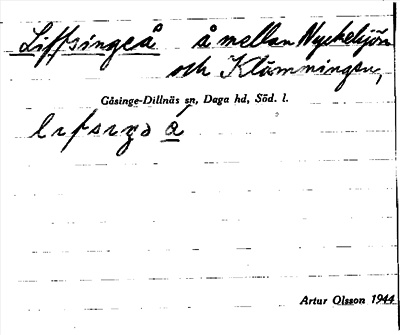 Liffsingeå å mellan Nyckelsjön
och Klämmingen,
Gåsinge-Dillnäs sn, Daga hd, Söd. l.
å
Artur Olsson 1944